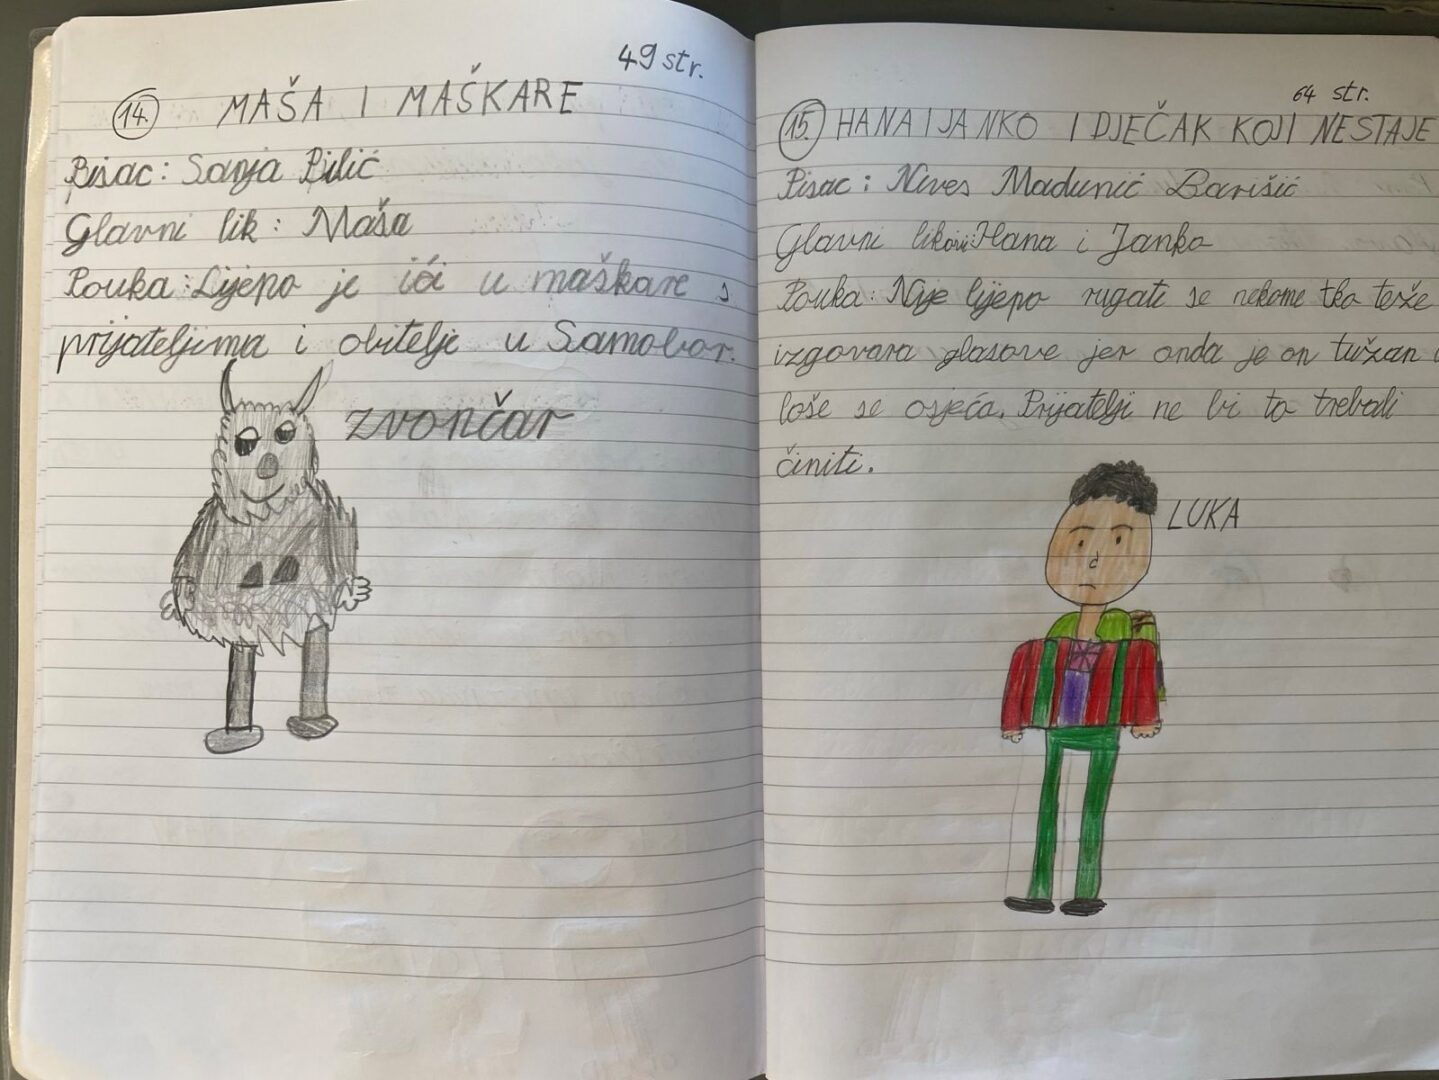 49 str.
14. MAŠA I MAŠKARE
Pisac: Sanja Pilić
Glavni lik: Maša
Pouka: Lijepo je ići u maškare s
prijateljima i obitelji u Samobor.
zvončar
64 str.
15. HANA I JANKO I DJEČAK KOJI NESTAJE
Pisac: Nives Madunić Barišić
Glavni likovi: Hana i Janko
Pouka: Nije lijepo rugati se nekome tko teže
izgovara glasove jer onda je on tužan i
loše se osjeća. Prijatelji ne bi to trebali
činiti.
LUKA